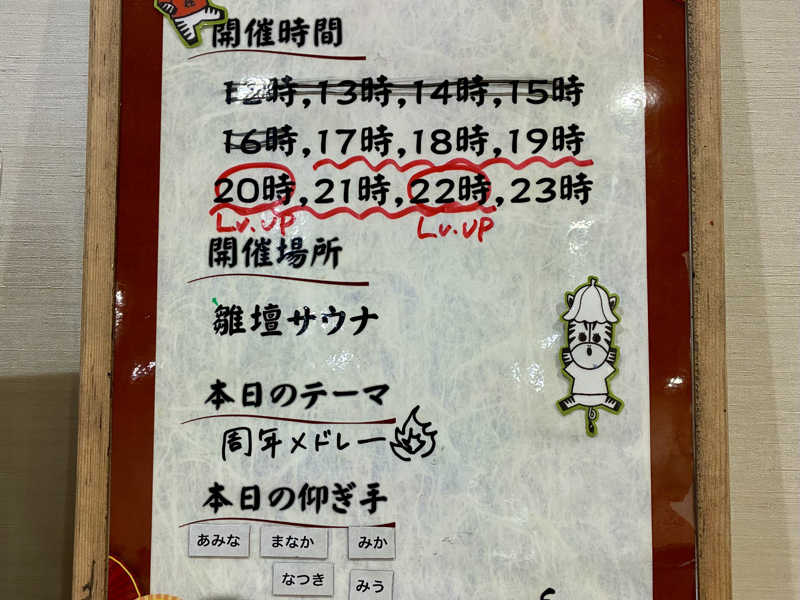 開催時間
12時,13時,14時,15時
16時,17時,18時,19時
20時,21時,22時,23時
Lv.UP Lv.UP
開催場所
雛壇サウナ
本日のテーマ
周年メドレー
本日の仰ぎ手
あみな まなか みか
なつき みう